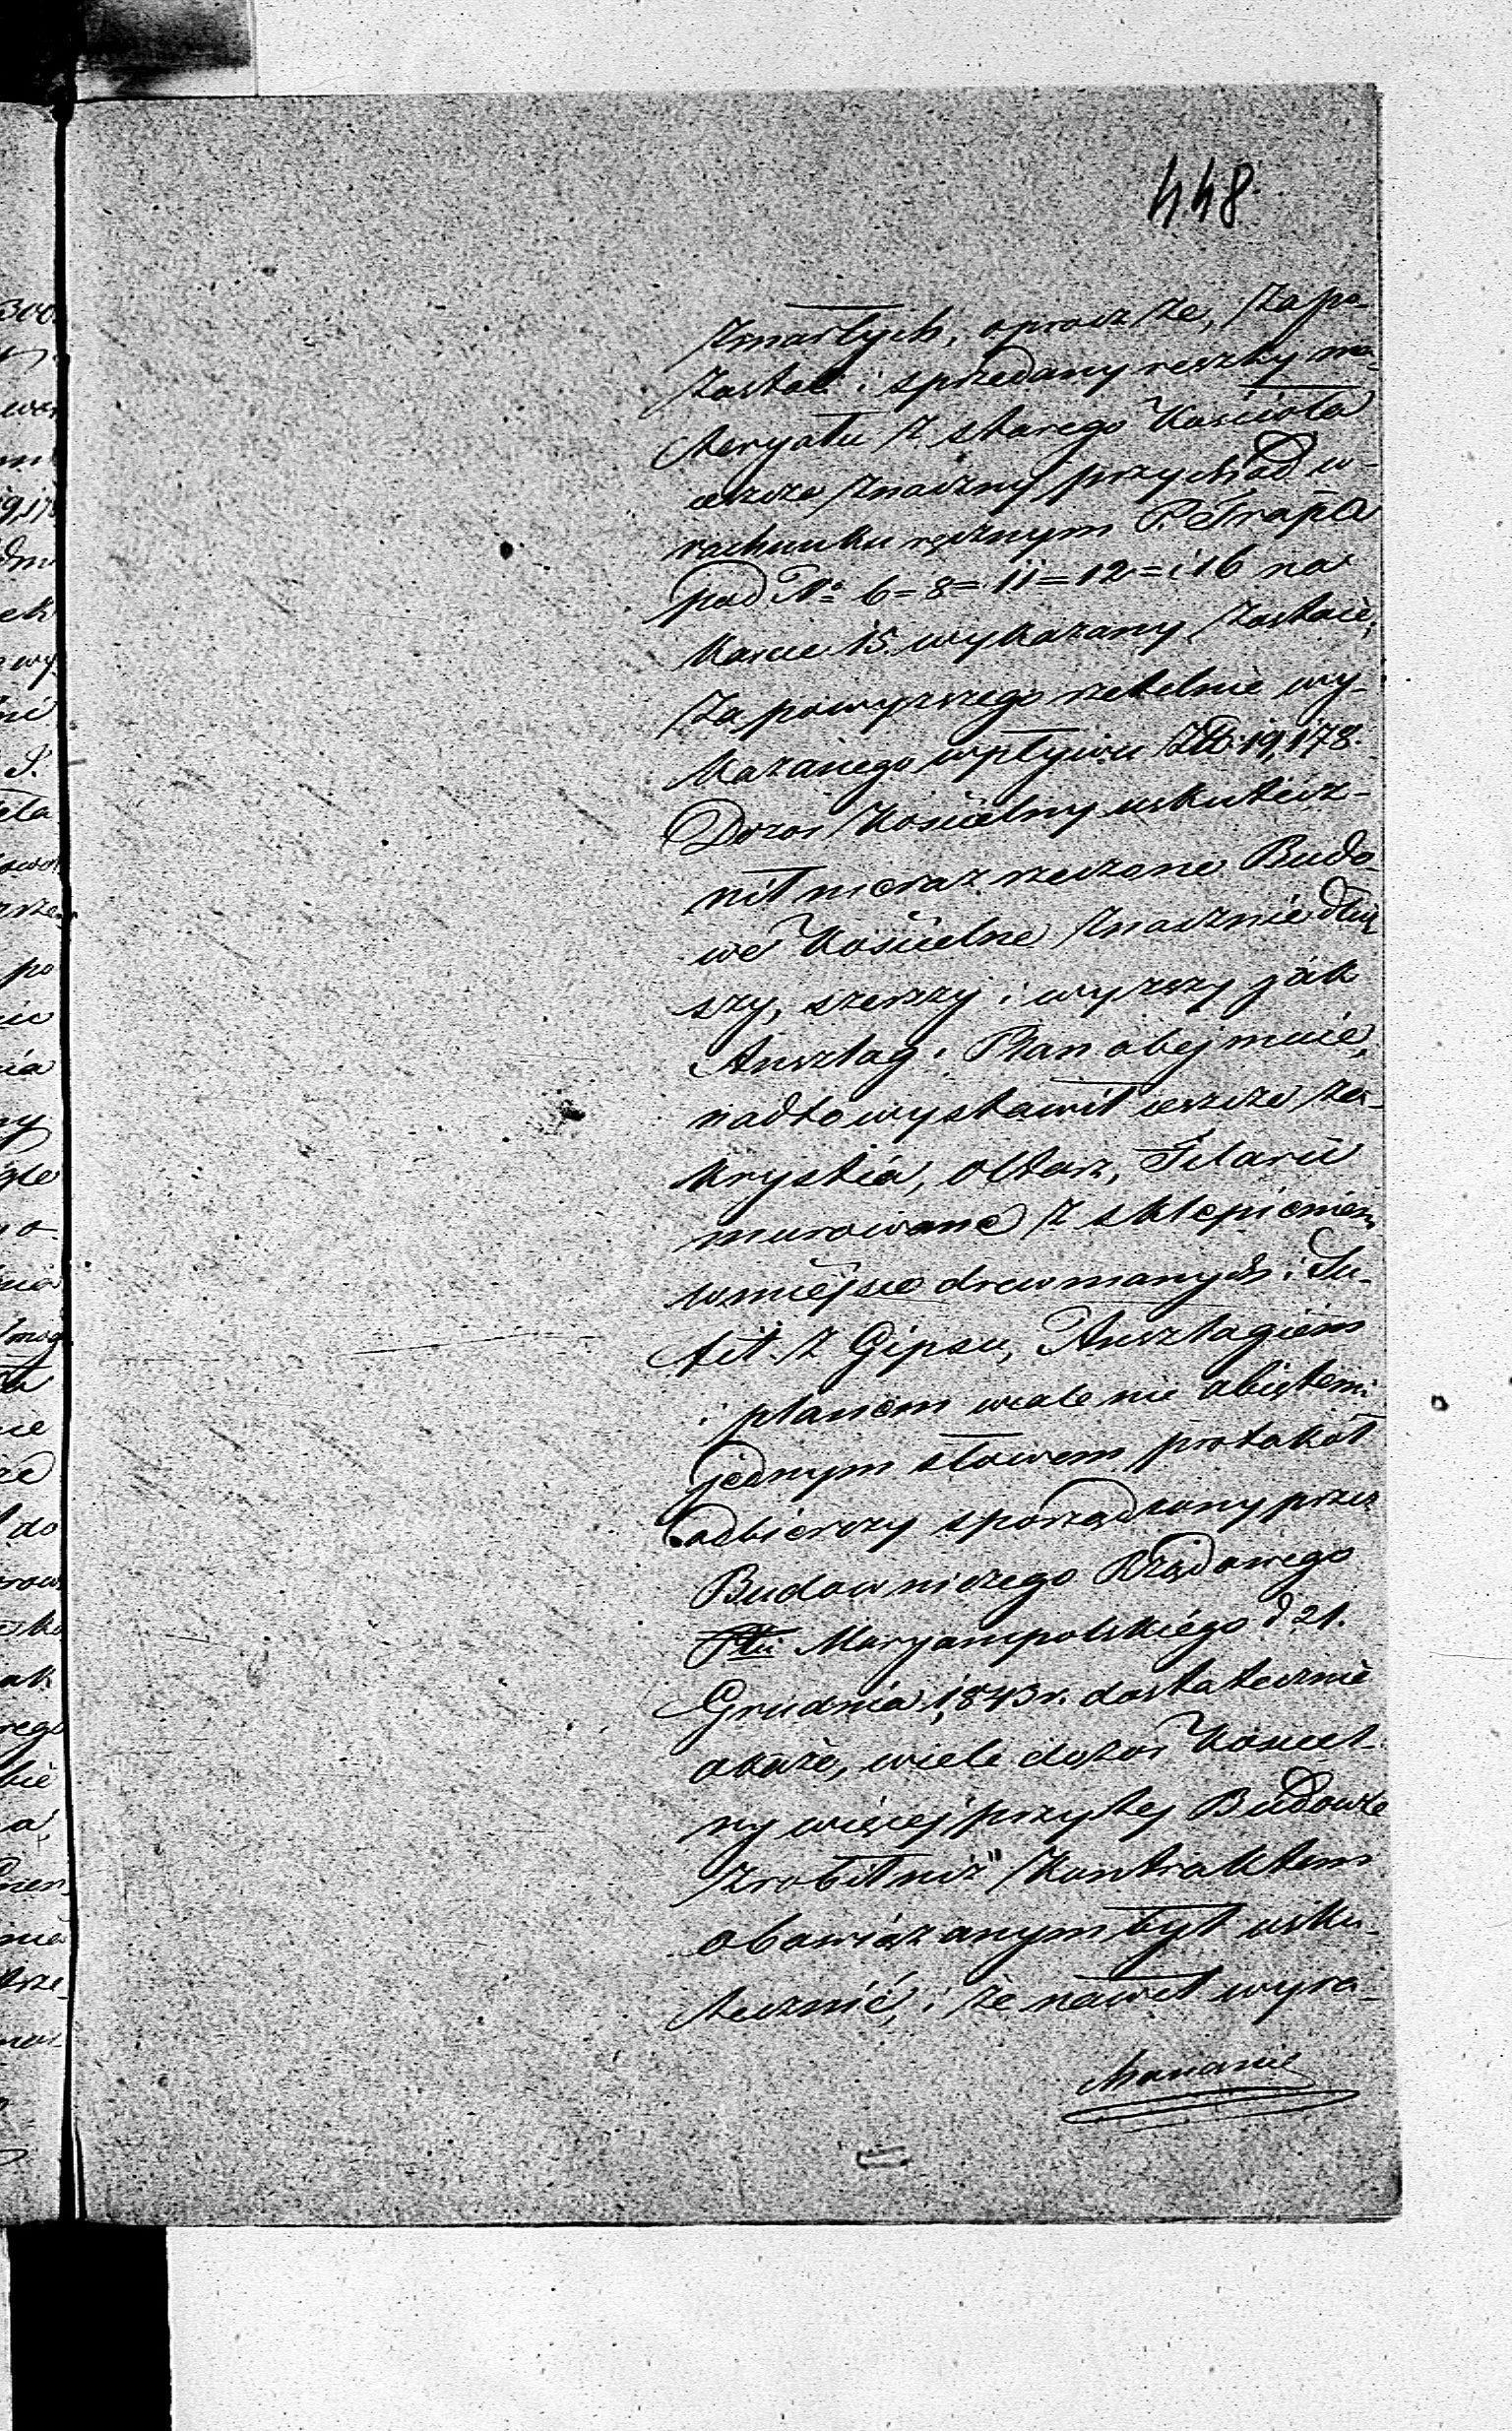 448.
zmarłych, oprocz że, za po
został i sprzedany reszty ma-
teryału z starego Kościoła
ieszcze znaczny przychód w
rachunku ręcznym P. Strapla
pod No 6=8=11=12=i 16 na
Karcie 15. wykazany zostaie,
Za powyzszego rzetelnie wy-
kazanego wpływu Złt: 19,178.
Dozor Kościelny uskutecz-
nił nieraz rzeczone Budo-
we Kościelne znacznie dłuż
szy, szerszy i wyzszy jak
Anszlag i Plan obejmuie,
nadto wystawił ieszcze za-
krystia, ołtarz, Filarii
murowane z sklepieniem
w miejsce drewnianych i Su-
fit z Gipsu, Anszlagiem
i planem wcale nie obiętemi
jednym słowem protokół
odbierczy sporządzony przez
Budowniczego Rządowego
Ptu Maryampolskiégo d 21.
Grudnia 1843 r. dostatecznie
okaże, wiele dozor Kosciel-
ny więcej przy tej Budowle
zrobił niż Kontraktem
obowiązanym był usku-
tecznić, i że nawet wyra-
300
19,178
wy
S.
po
nia
do
rego
bie